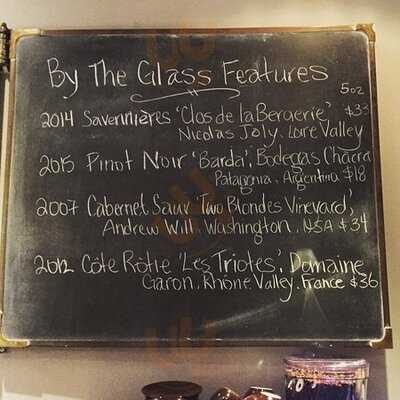 By The Glass Features
5oz
2014 Savennières 'Clos de la Bergerie' $33
Nicolas Joly, Loire Valley
2015 Pinot Noir 'Barda', Bodegas Chacra
Patagonia, Argentina $18
2007 Cabernet Sauv 'Two Blondes Vineyard',
Andrew Will, Washington, USA $34
2012 Côte Rôtie 'Les Triotes', Domaine
Garon, Rhône Valley, France $36